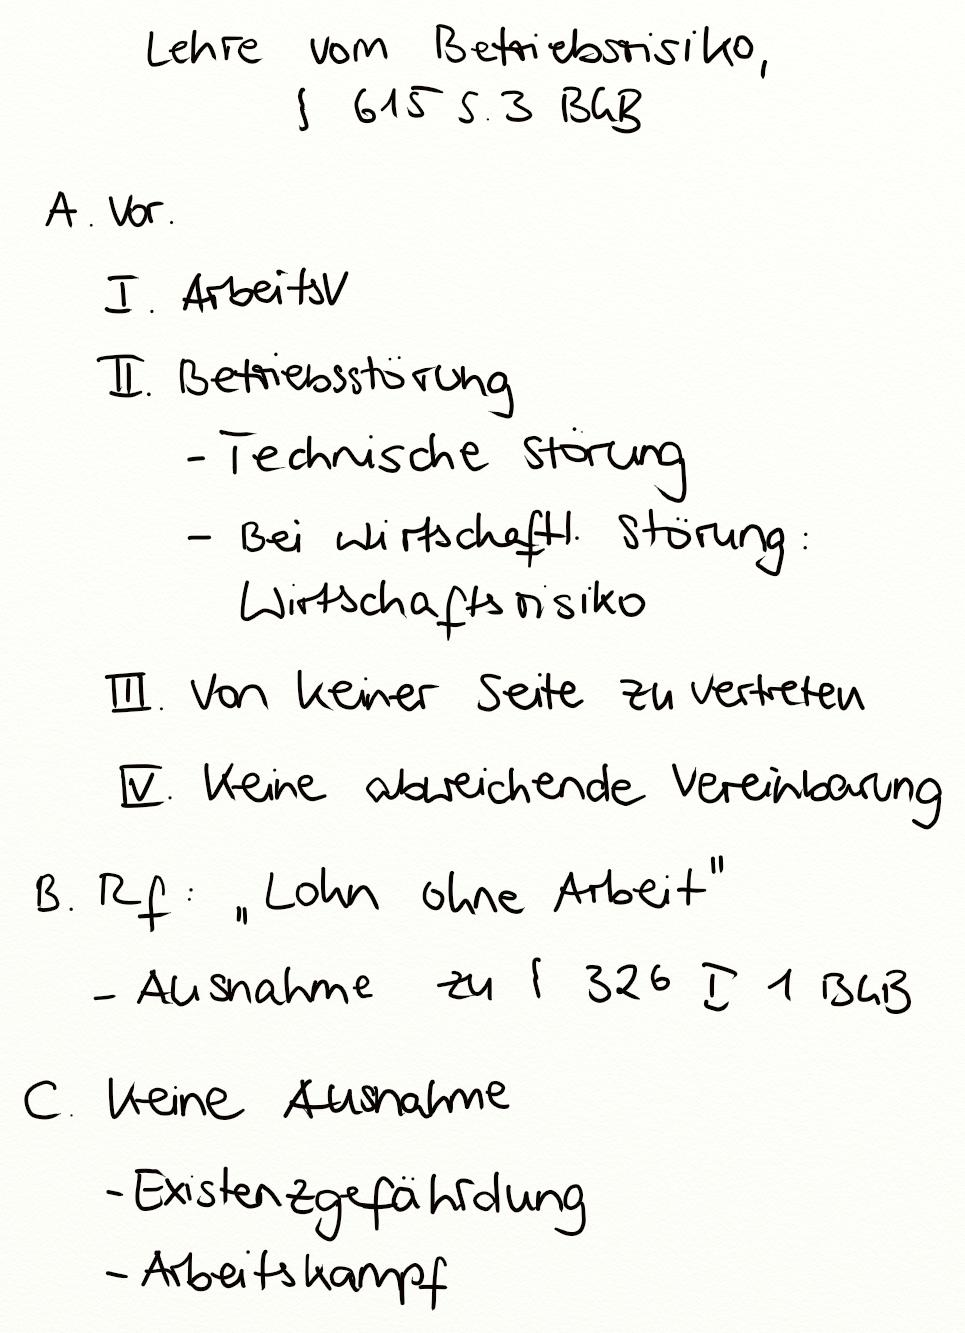 Lehre vom Betriebsrisiko,
§ 615 S. 3 BGB
A. Vor.
I. ArbeitsV
II. Betriebsstörung
- Technische Störung
- Bei wirtschaftl. Störung:
Wirtschaftsrisiko
III. Von keiner Seite zu vertreten
IV. Keine abweichende Vereinbarung
B. Rf: „Lohn ohne Arbeit"
- Ausnahme zu § 326 I 1 BGB
C. Keine Ausnahme
- Existenzgefährdung
- Arbeitskampf